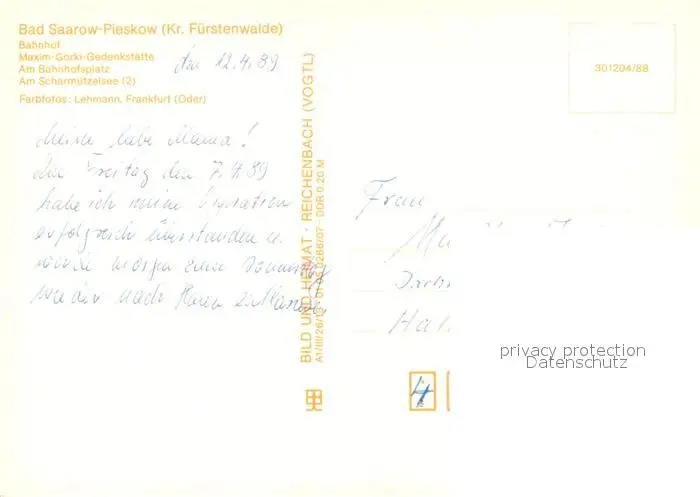 Bad Saarow-Pieskow (Kr. Fürstenwalde)
Bahnhof
Maxim-Gorki-Gedenkstätte
Am Bahnhofsplatz
Am Scharmützelsee (2)
Farbfotos: Lehmann, Frankfurt (Oder)
den 12.4.89
Meine liebe Mama!
Am Freitag den 7.4.89
habe ich meine Operation
erfolgreich überstanden u.
werde morgen zum Donnerstag
wieder nach Hause entlassen.
BILD UND HEIMAT · REICHENBACH (VOGTL)
A1/III/26/13 DDR 0,20 M
301204/88
Frau
4
privacy protection
Datenschutz